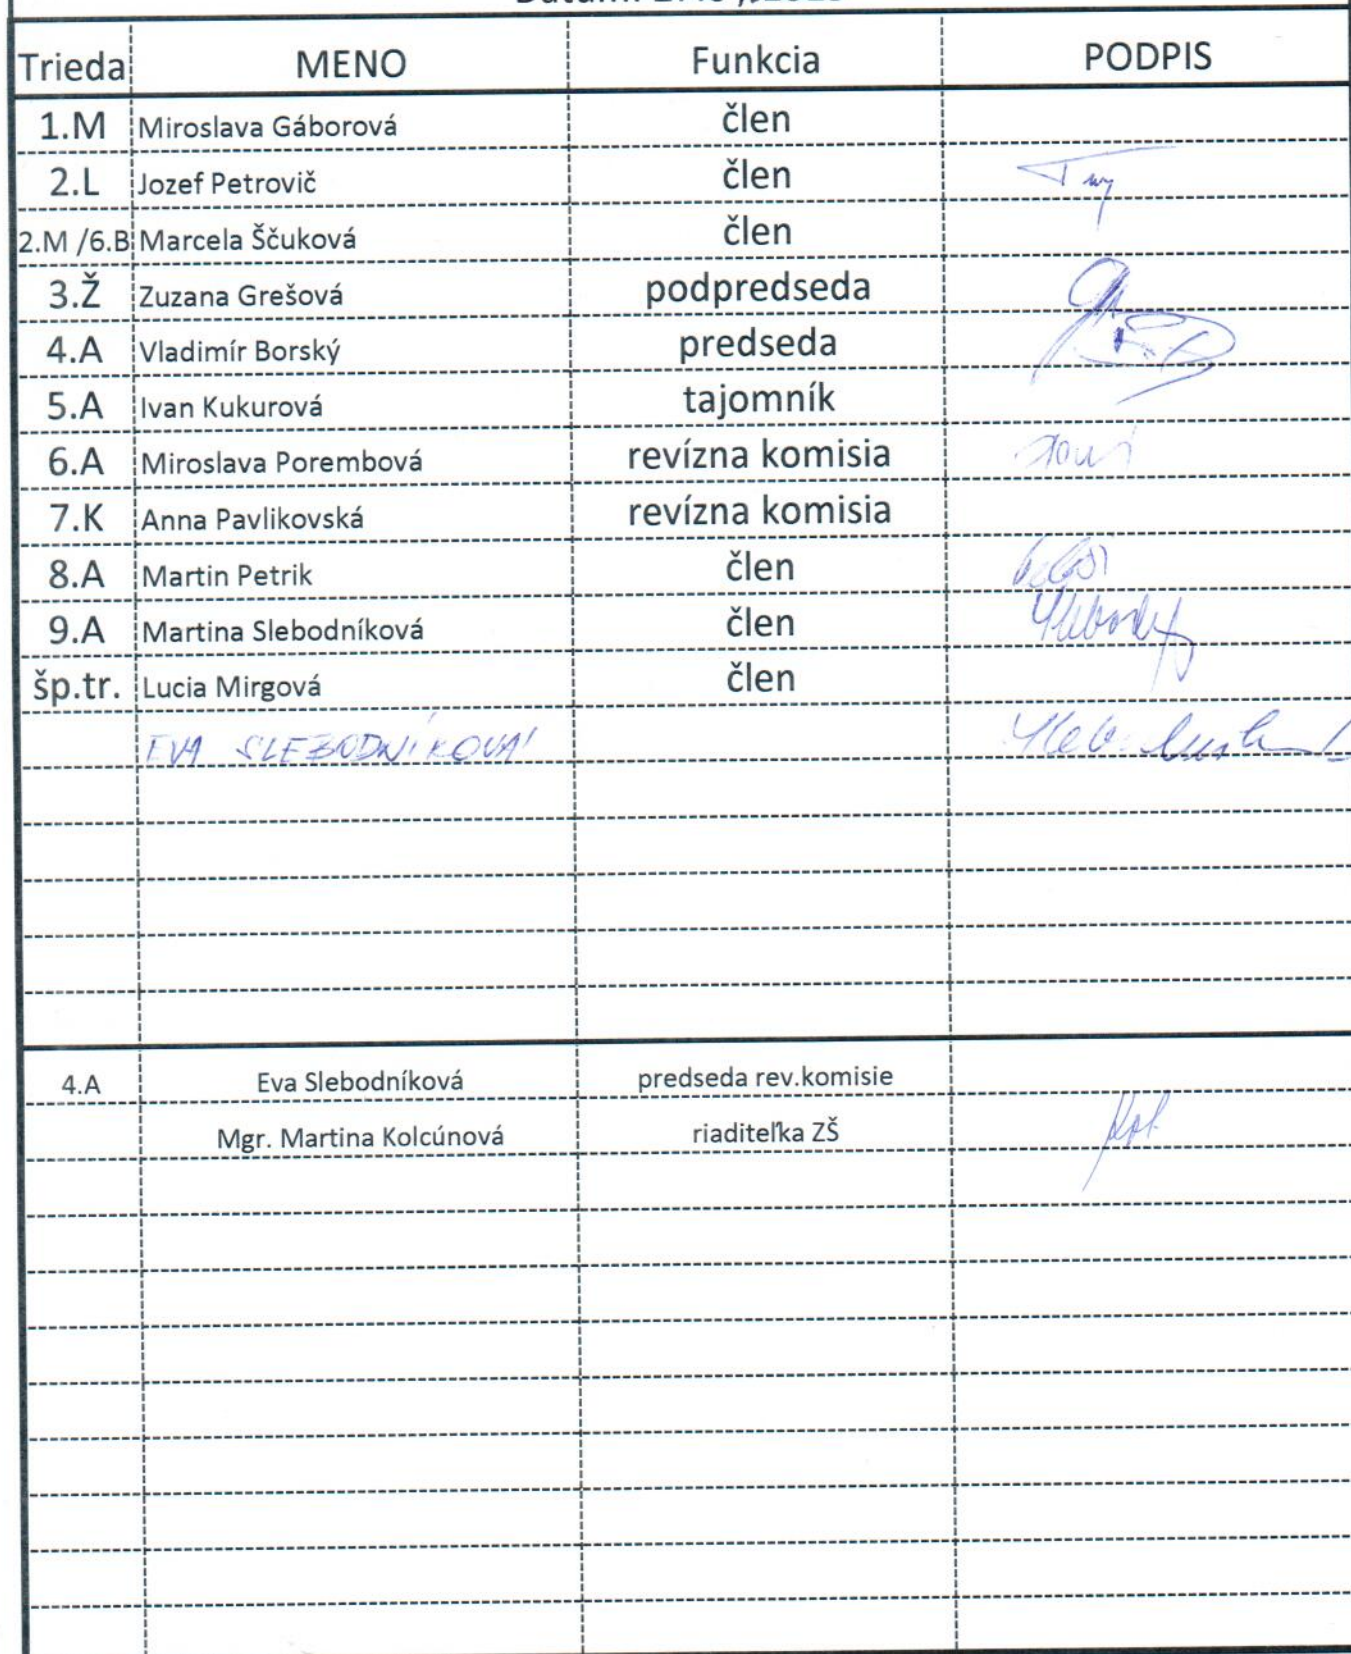 Trieda MENO Funkcia PODPIS
1.M Miroslava Gáborová člen
2.L Jozef Petrovič člen
2.M /6.B Marcela Ščuková člen
3.Ž Zuzana Grešová podpredseda
4.A Vladimír Borský predseda
5.A Ivan Kukurová tajomník
6.A Miroslava Porembová revízna komisia
7.K Anna Pavlikovská revízna komisia
8.A Martin Petrik člen
9.A Martina Slebodníková člen
šp.tr. Lucia Mirgová člen
EVA SLEBODNÍKOVÁ
4.A Eva Slebodníková predseda rev.komisie
Mgr. Martina Kolcúnová riaditeľka ZŠ